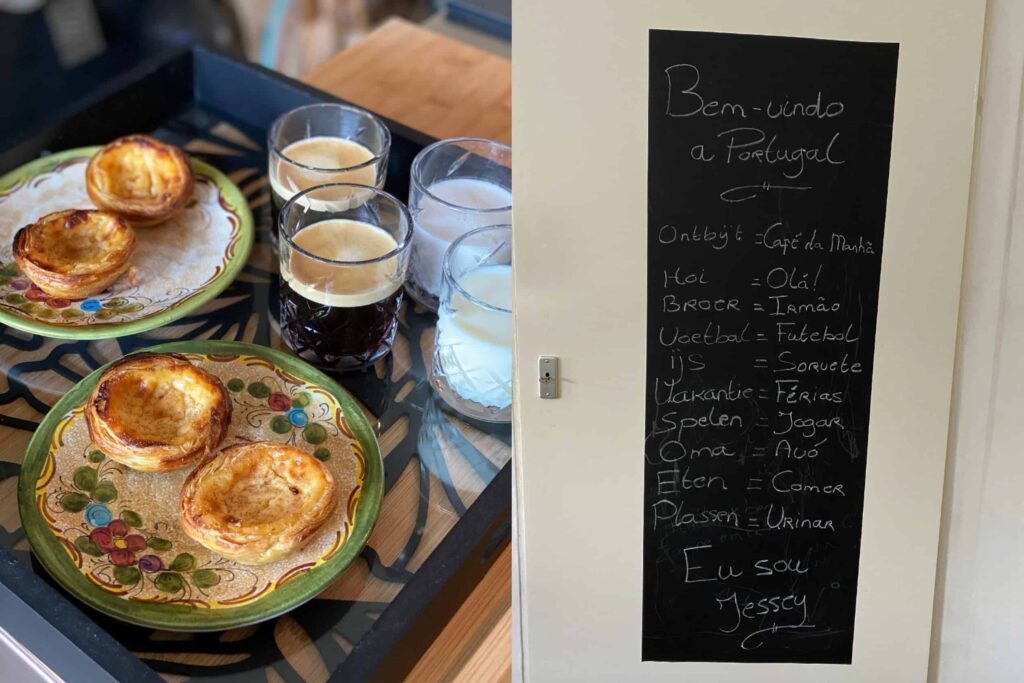 Bem-vindo
a Portugal
Ontbijt = Café da Manhã
Hoi = Olá!
Broer = Irmão
Voetbal = Futebol
ijs = Sorvete
Vakantie = Férias
Spelen = Jogar
Oma = Avó
Eten = Comer
Plassen = Urinar
Eu sou
Jessey